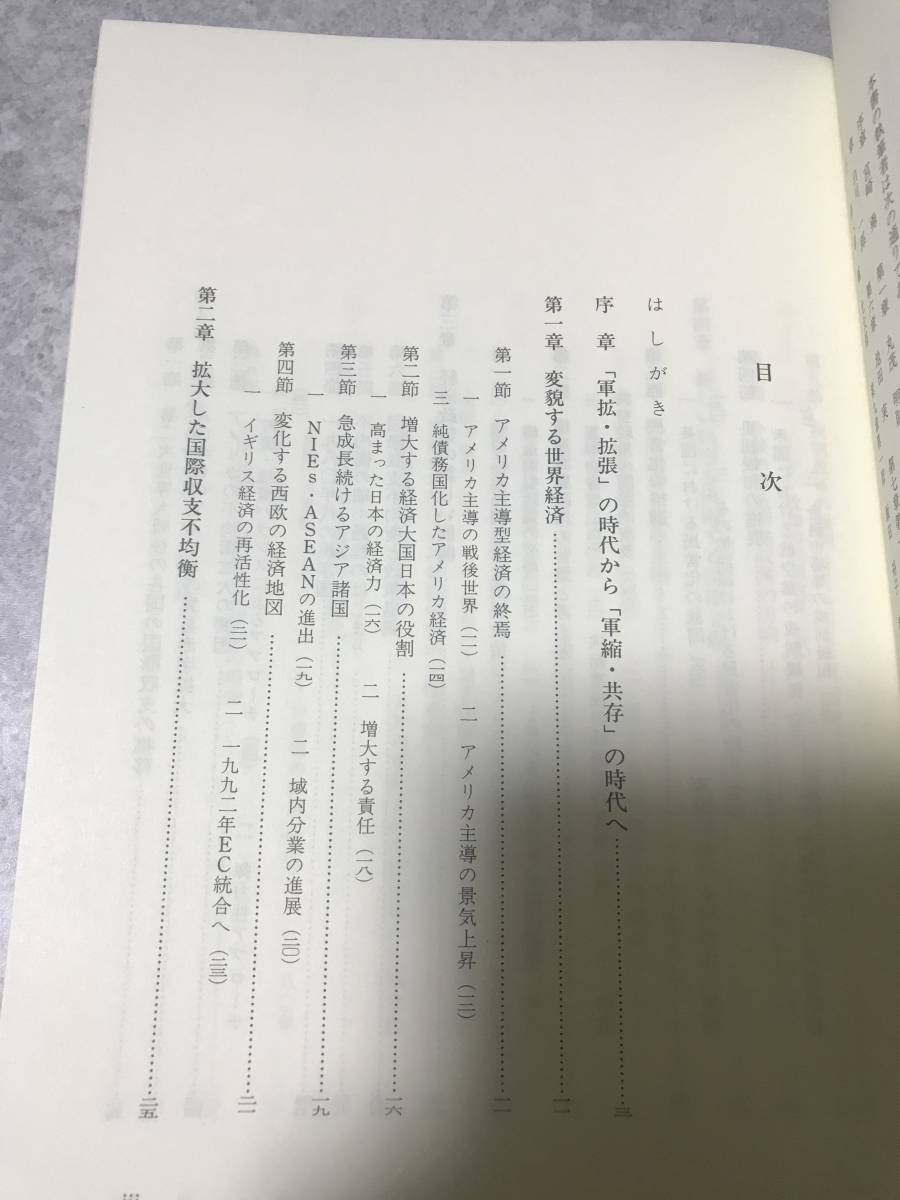 目次
はしがき
序章 「軍拡・拡張」の時代から「軍縮・共存」の時代へ……三
第一章 変貌する世界経済……一一
第一節 アメリカ主導型経済の終焉……一一
一 アメリカ主導の戦後世界（一一） 二 アメリカ主導の景気上昇（一三）
三 純債務国化したアメリカ経済（一四）
第二節 増大する経済大国日本の役割……一六
一 高まった日本の経済力（一六） 二 増大する責任（一八）
第三節 急成長続けるアジア諸国……一九
一 NIEs・ASEANの進出（一九） 二 域内分業の進展（二〇）
第四節 変化する西欧の経済地図……二一
一 イギリス経済の再活性化（二一） 二 一九九二年EC統合へ（二三）
第二章 拡大した国際収支不均衡……二五
iii